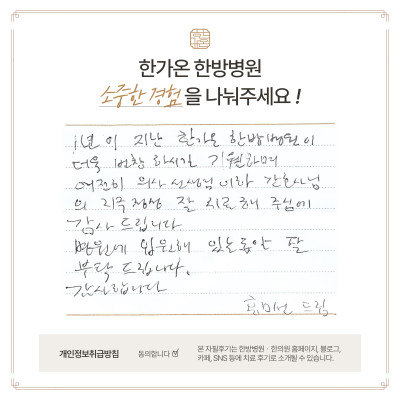 한가온 한방병원
소중한 경험을 나눠주세요!
1년이 지난 한가온 한방병원이
더욱 번창 하시길 기원하며
여전히 의사 선생님 이하 간호사님
의 지극정성 잘 치료해 주심에
감사 드립니다.
병원에 입원해 있는동안 잘
부탁 드립니다.
감사합니다
드림
개인정보취급방침 동의합니다
본 자필후기는 한방병원 · 한의원 홈페이지, 블로그,
카페, SNS 등에 치료 후기로 소개될 수 있습니다.